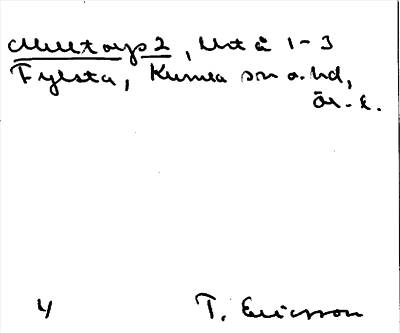 2, Litt å 1-3
Fylsta, Kumla sn o. hd,
Ör. l.
4 T. Ericsson